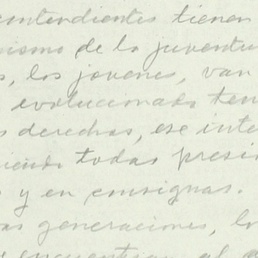 contendientes tienen
nismo de la juventu
s, los jovenes, van
evolucionado ten
s derechos, ese inte
niendo todas presi
y en consignas.
as generaciones, lo
encuentran al